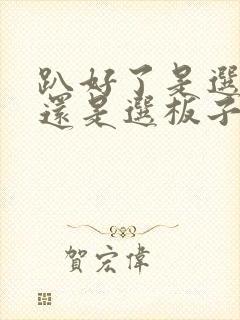 趴好了是選
還是選板子
賀宏偉